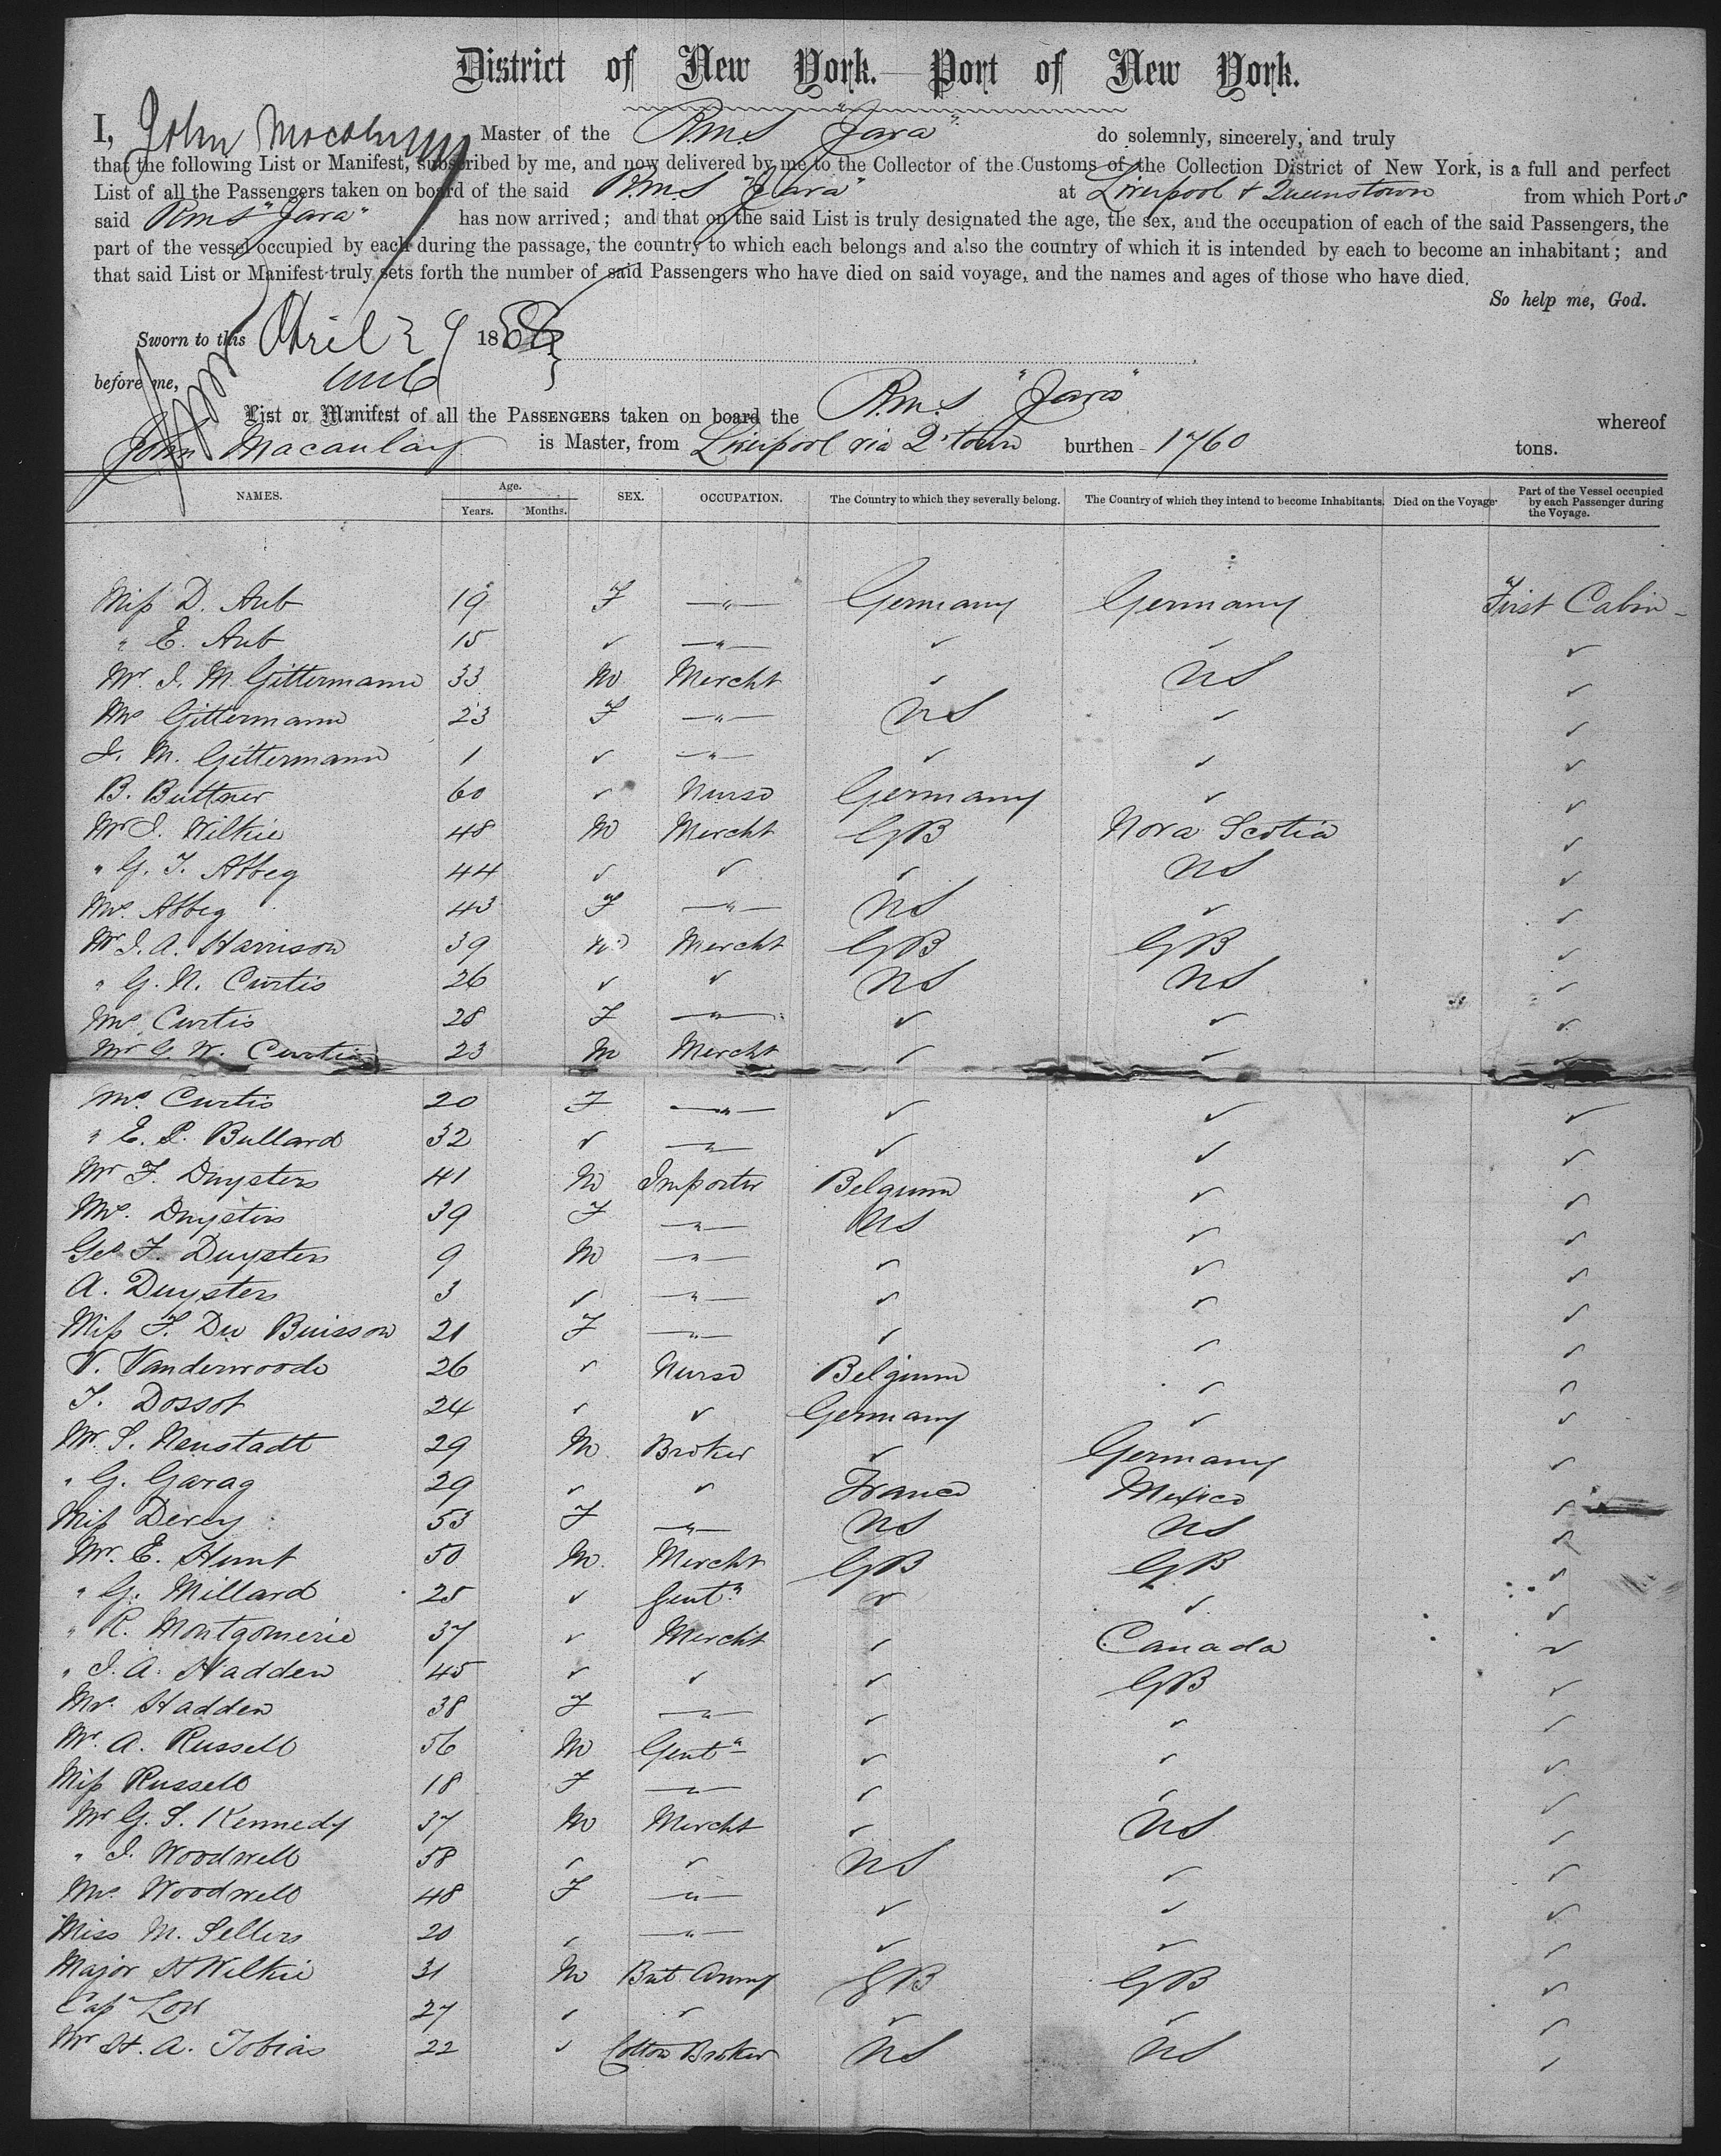 District of New York.—Port of New York.
I, John Macaulay Master of the R.M.S "Java" do solemnly, sincerely, and truly
that the following List or Manifest, subscribed by me, and now delivered by me to the Collector of the Customs of the Collection District of New York, is a full and perfect
List of all the Passengers taken on board of the said R.M.S "Java" at Liverpool & Queenstown from which Ports
said RMS "Java" has now arrived; and that on the said List is truly designated the age, the sex, and the occupation of each of the said Passengers, the
part of the vessel occupied by each during the passage, the country to which each belongs and also the country of which it is intended by each to become an inhabitant; and
that said List or Manifest truly sets forth the number of said Passengers who have died on said voyage, and the names and ages of those who have died.
So help me, God.
Sworn to this April 29 186
before me,
List or Manifest of all the PASSENGERS taken on board the R.M.S "Java" whereof
John Macaulay is Master, from Liverpool via Q'town burthen 1760 tons.
NAMES. Age. Years. Months. SEX. OCCUPATION. The Country to which they severally belong. The Country of which they intend to become Inhabitants. Died on the Voyage Part of the Vessel occupied by each Passenger during the Voyage.
Miss D. Aub 19 F —"— Germany Germany First Cabin
" E. Aub 15 ✓ —"— ✓ ✓ ✓
Mr. J. M. Gittermann 33 M Mercht ✓ US ✓
Mrs Gittermann 23 F —"— US ✓ ✓
J. M. Gittermann 1 ✓ —"— ✓ ✓ ✓
B. Buttner 60 ✓ Nurse Germany ✓ ✓
Mr J. Wilkie 48 M Mercht GB Nova Scotia ✓
" G. F. Abbeg 44 ✓ ✓ ✓ US ✓
Mrs. Abbeg 43 F —"— US ✓ ✓
Mr J. A. Harrison 39 M Mercht GB GB ✓
" G. N. Curtis 26 ✓ ✓ US US ✓
Mrs Curtis 28 F —"— ✓ ✓ ✓
Mr G. W. Curtis 23 M Mercht ✓ ✓ ✓
Mrs. Curtis 20 F —"— ✓ ✓ ✓
" E. P. Bullard 32 ✓ —"— ✓ ✓ ✓
Mr F. Duysters 41 M Importer Belgium ✓ ✓
Mrs. Duysters 39 F —"— US ✓ ✓
Geo F. Duysters 9 M —"— ✓ ✓ ✓
A. Duysters 3 ✓ —"— ✓ ✓ ✓
Miss F. Du Buisson 21 F —"— ✓ ✓ ✓
V. Vanderwoode 26 ✓ Nurse Belgium ✓ ✓
F. Dossot 24 ✓ ✓ Germany ✓ ✓
Mr. S. Neustadt 29 M Broker ✓ Germany ✓
" G. Garag 29 ✓ ✓ France Mexico ✓
Miss Dercy 53 F —"— US US ✓
Mr. E. Hunt 50 M. Mercht GB GB ✓
" G. Millard 25 ✓ Gentn ✓ ✓ ✓
" R. Montgomerie 37 ✓ Mercht ✓ Canada ✓
" J. A. Hadden 45 ✓ ✓ ✓ GB ✓
Mrs. Hadden 38 F —"— ✓ ✓ ✓
Mr. A. Russell 56 M Gentn ✓ ✓ ✓
Miss Russell 18 F —"— ✓ ✓ ✓
Mr G. S. Kennedy 37 M Mercht ✓ US ✓
" J. Woodwell 58 ✓ ✓ US ✓ ✓
Mrs. Woodwell 48 F —"— ✓ ✓ ✓
Miss M. Sellers 20 ✓ —"— ✓ ✓ ✓
Major H Wilkie 31 M Brit Army GB GB ✓
Capt Low 27 ✓ ✓ ✓ ✓ ✓
Mr H. A. Tobias 22 ✓ Cotton Broker US US ✓